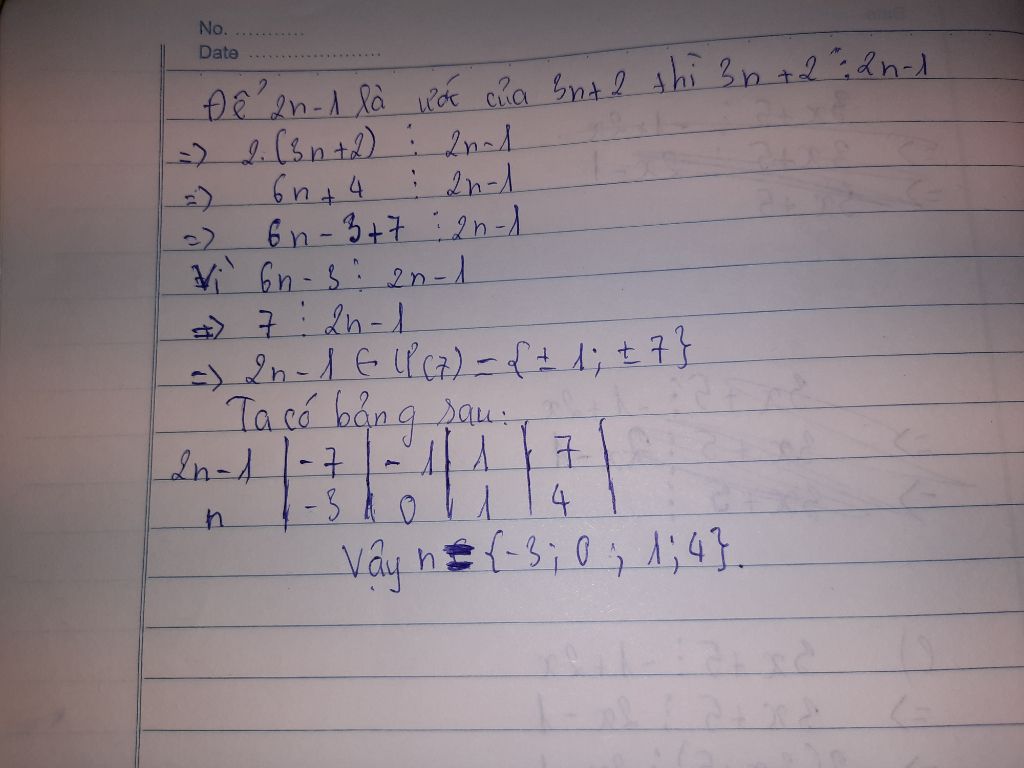 No. ............
Date ........................
Để 2n-1 là ước của 3n+2 thì 3n+2 ⋮ 2n-1
=> 2.(3n+2) ⋮ 2n-1
=> 6n+4 ⋮ 2n-1
=> 6n-3+7 ⋮ 2n-1
Vì 6n-3 ⋮ 2n-1
=> 7 ⋮ 2n-1
=> 2n-1 ∈ Ư(7) = {±1; ±7}
Ta có bảng sau:
2n-1 | -7 | -1 | 1 | 7 |
n | -3 | 0 | 1 | 4 |
Vậy n ∈ {-3; 0; 1; 4}.